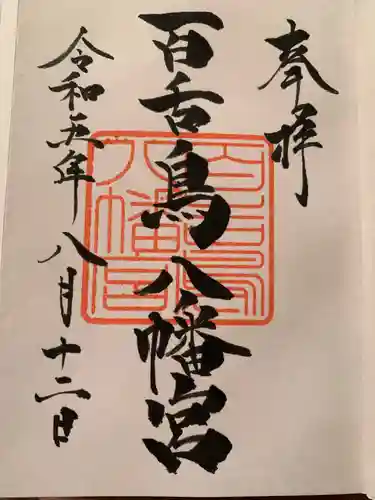 奉拝
百舌鳥八幡宮
百舌鳥八幡宮
令和五年八月十二日